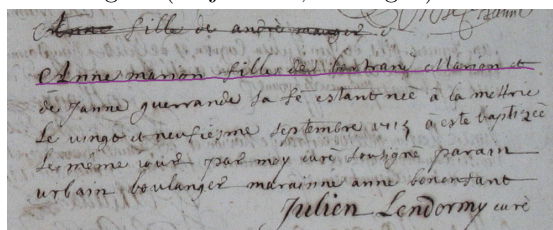 Anne fille de andré mauger
Anne marion fille de bertran Marion et
de Janne guerrande sa fe estant neé a la mettrie
Le vingt et neufiesme septembre 1715 a este baptizeè
Le mème iour par moy curè soubsignè parain
urbain boulanger marainne anne bonenfant
Julien Lendormy curè